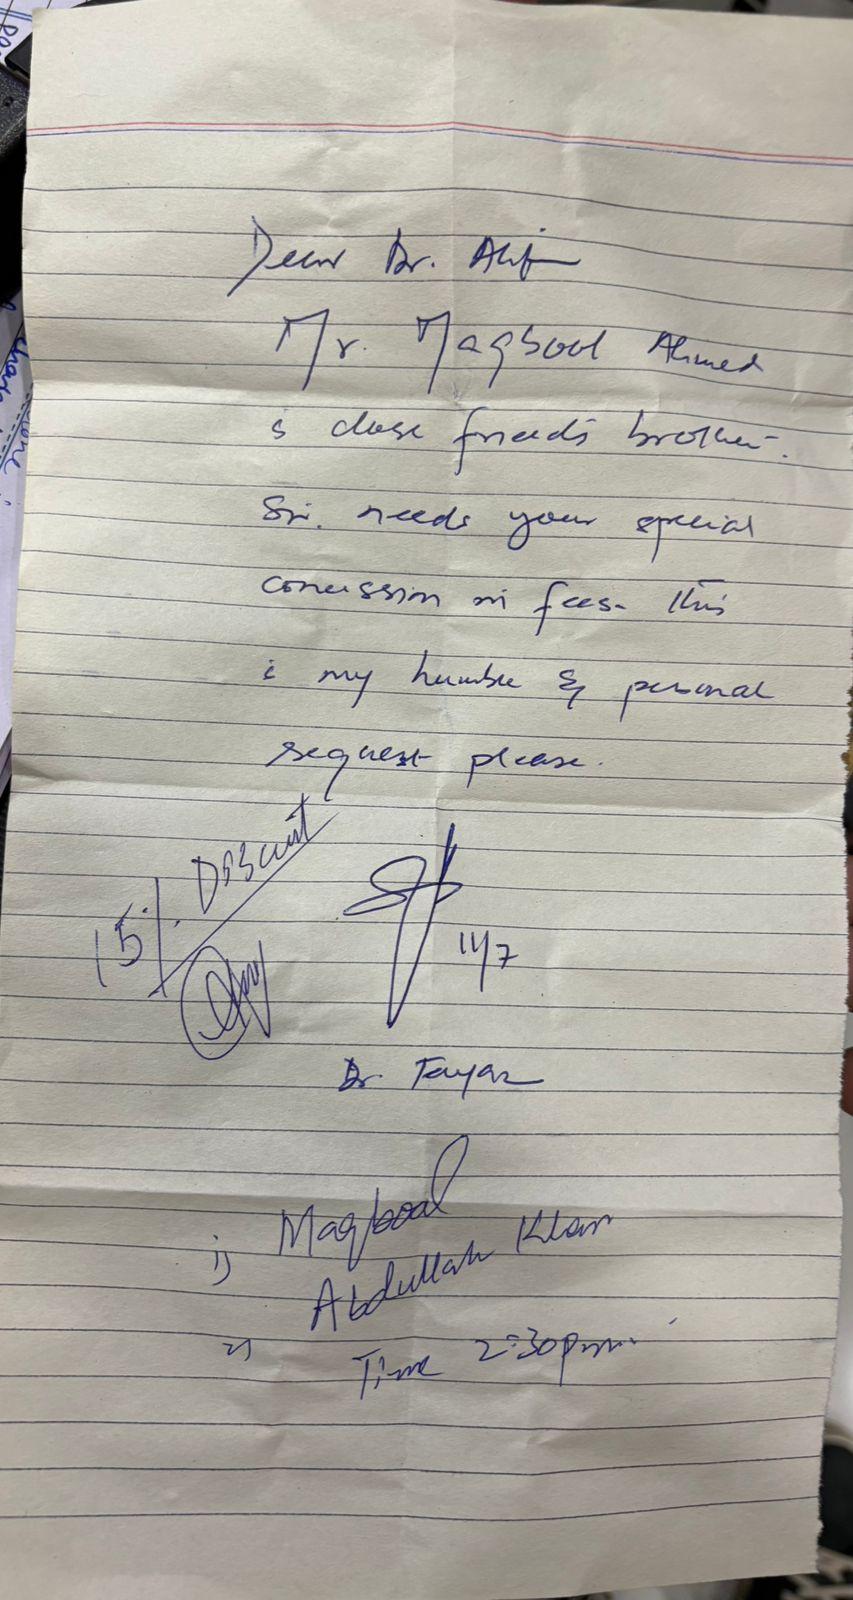 Dear Dr. Atif
Mr. Maqbool Ahmed
is close friend's brother.
Sir. needs your special
concession in fees. This
is my humble & personal
request please.
15% Discount
11/7
Dr. Fayaz
1) Maqbool
Abdullah Khan
2) Time 2:30 p.m.